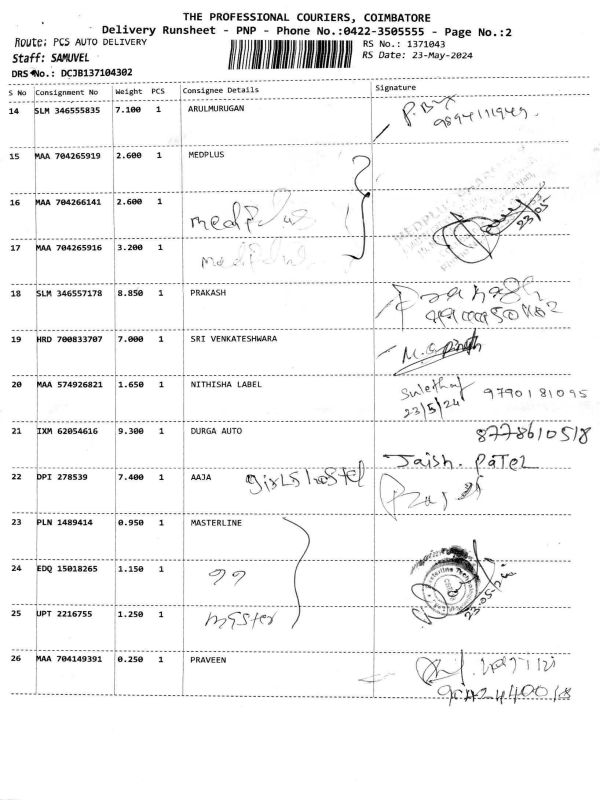 THE PROFESSIONAL COURIERS, COIMBATORE
Delivery Runsheet - PNP - Phone No.:0422-3505555 - Page No.:2
Route: PCS AUTO DELIVERY
RS No.: 1371043
Staff: SAMUVEL
RS Date: 23-May-2024
DRS No.: DCJB137104302
S No Consignment No Weight PCS Consignee Details Signature
14 SLM 346555835 7.100 1 ARULMURUGAN
15 MAA 704265919 2.600 1 MEDPLUS
16 MAA 704266141 2.600 1
medplus
23/05
17 MAA 704265916 3.200 1
18 SLM 346557178 8.850 1 PRAKASH
19 HRD 700833707 7.000 1 SRI VENKATESHWARA
20 MAA 574926821 1.650 1 NITHISHA LABEL
9790181095
23/5/24
21 IXM 62054616 9.300 1 DURGA AUTO
8778610518
Jaish. Patel
22 DPI 278539 7.400 1 AAJA girls hostel
23 PLN 1489414 0.950 1 MASTERLINE
24 EDQ 15018265 1.150 1
25 UPT 2216755 1.250 1
26 MAA 704149391 0.250 1 PRAVEEN